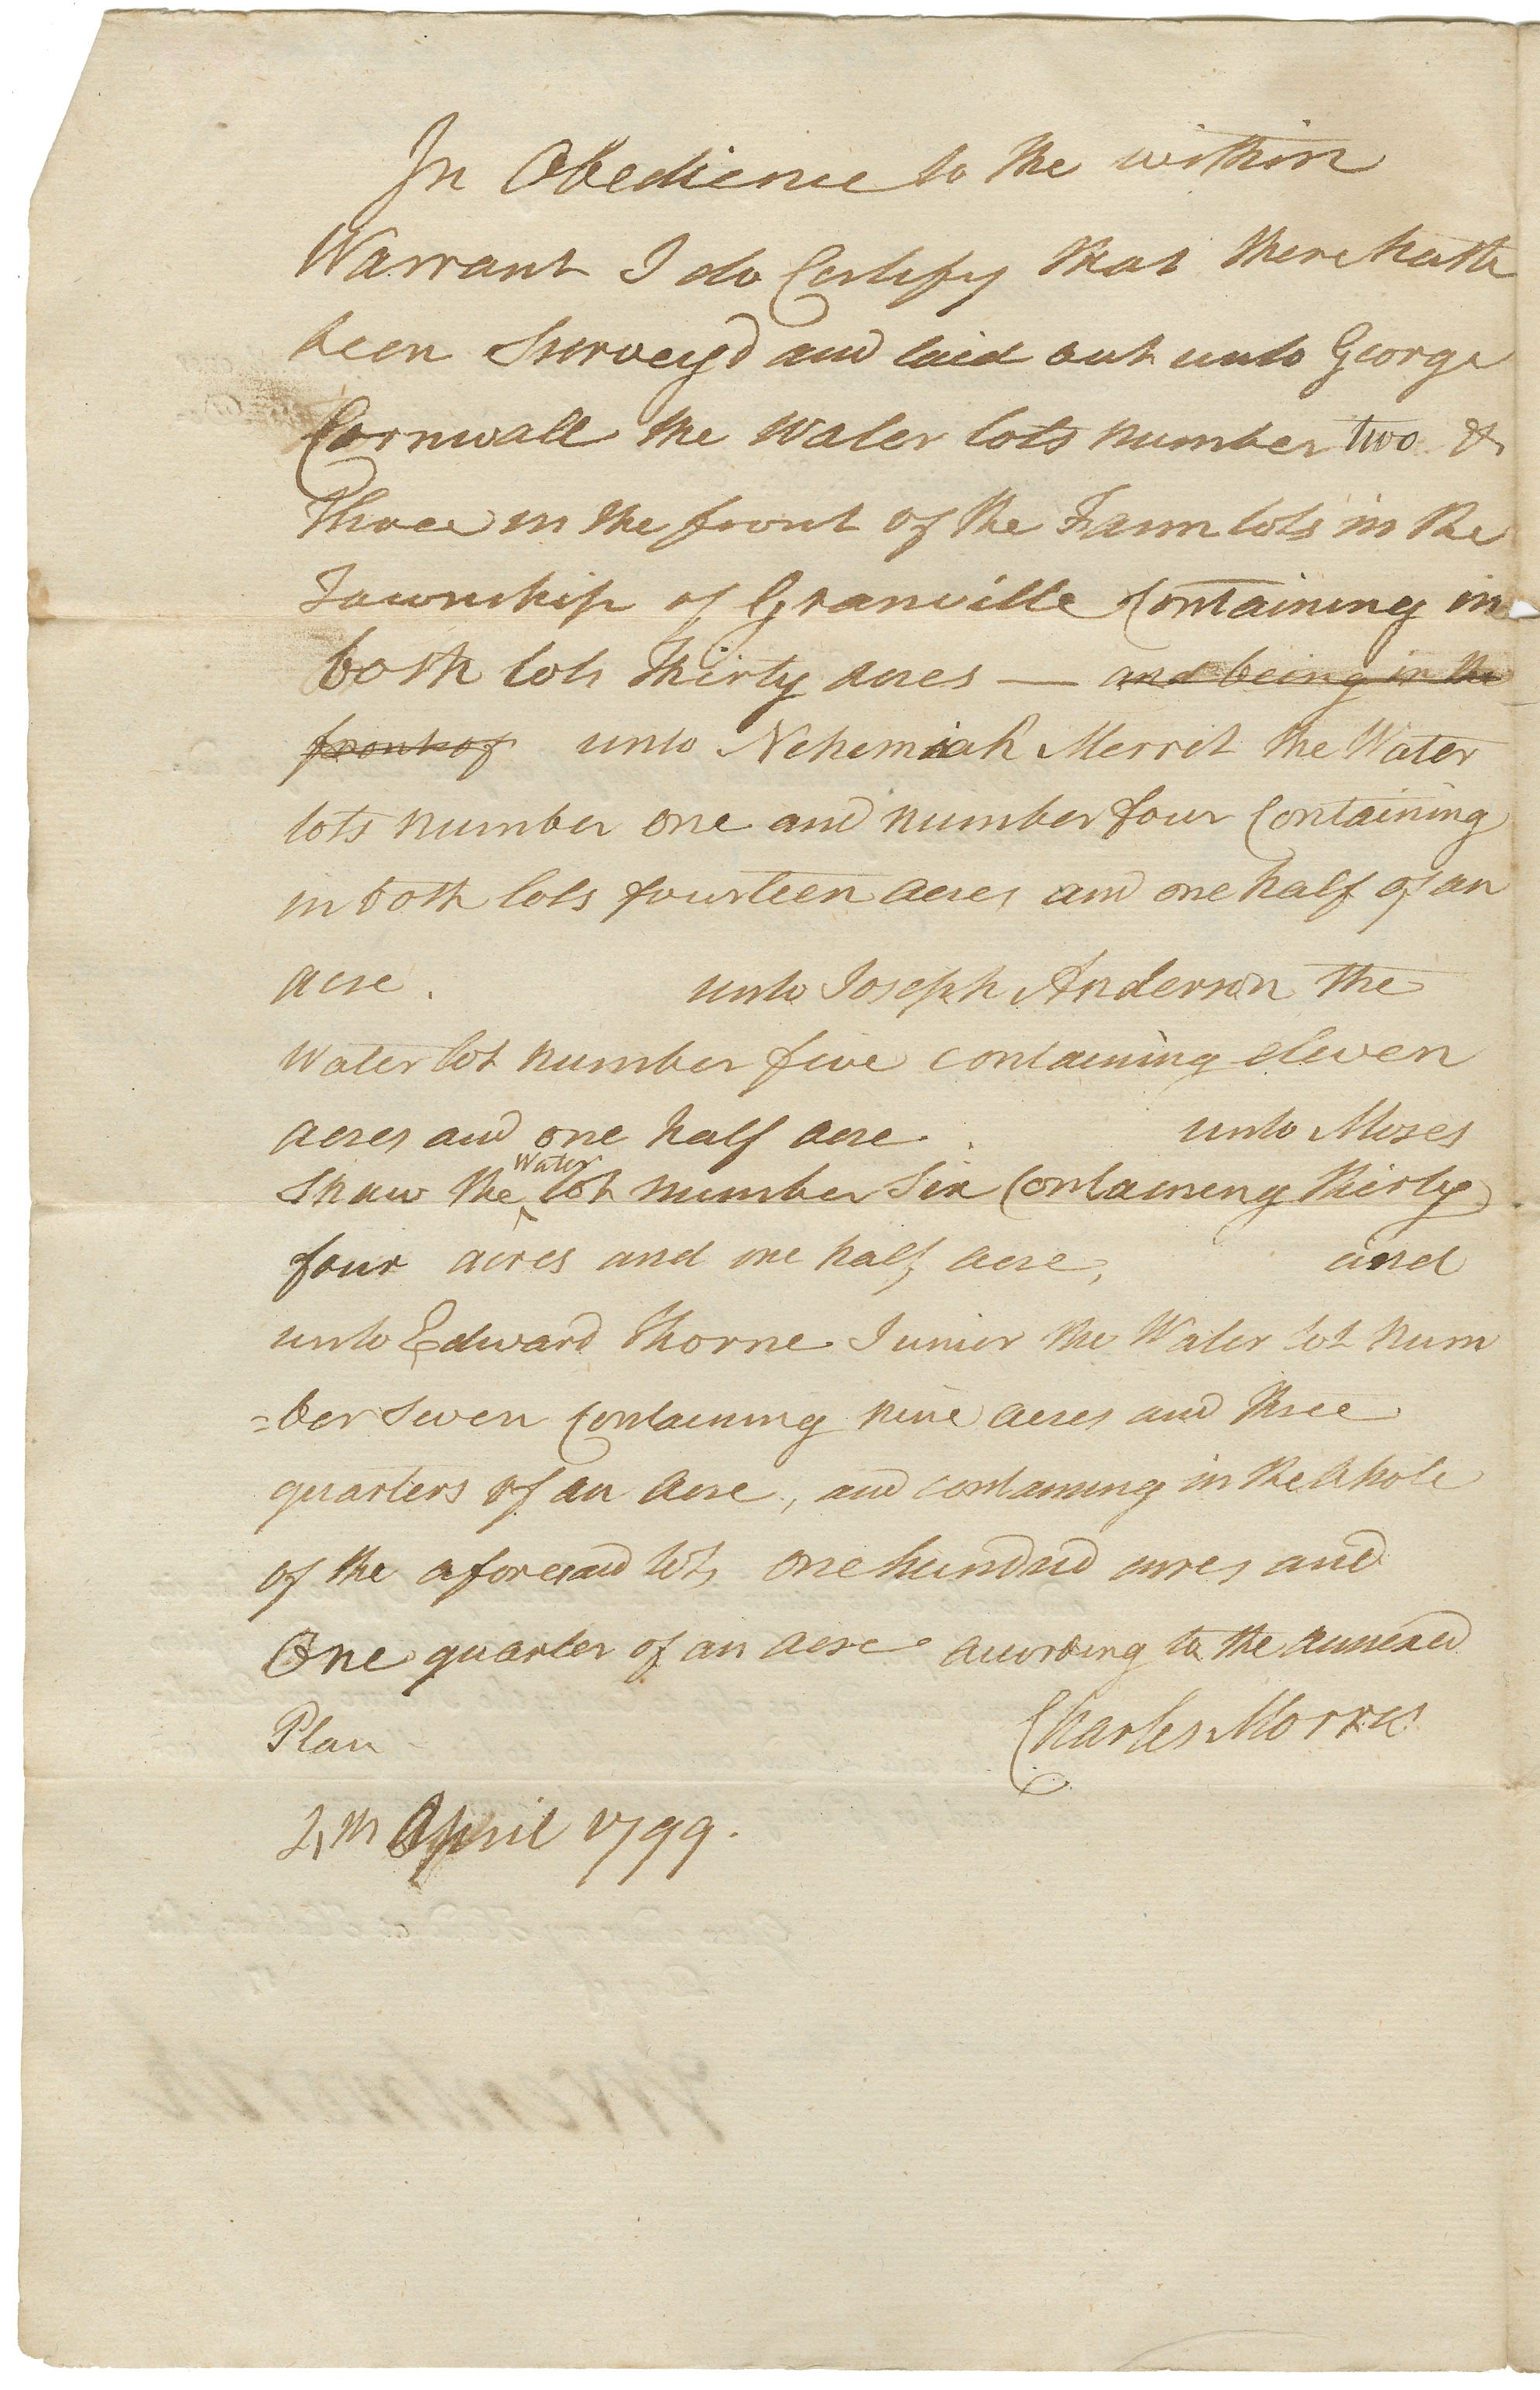 In Obedience to the within
Warrant I do Certify that there hath
been Survey'd and laid out unto George
Cornwall the Water lots number two &
Three in the front of the Farm lots in the
Township of Granville Containing in
both lots thirty acres — and being in the
front of unto Nehemiah Merrit the Water
lots number one and number four Containing
in both lots fourteen acres and one half of an
acre. unto Joseph Anderson the
Water lot number five containing eleven
acres and one half acre. unto Moses
Shaw the Water lot number Six Containing thirty
four acres and one half acre, and
unto Edward Thorne Junior the Water lot num
=ber Seven Containing nine acres and three
quarters of an acre, and containing in the whole
of the aforesaid lots one hundred acres and
One quarter of an acre according to the annexed
Plan
Charles Morris
4th April 1799.